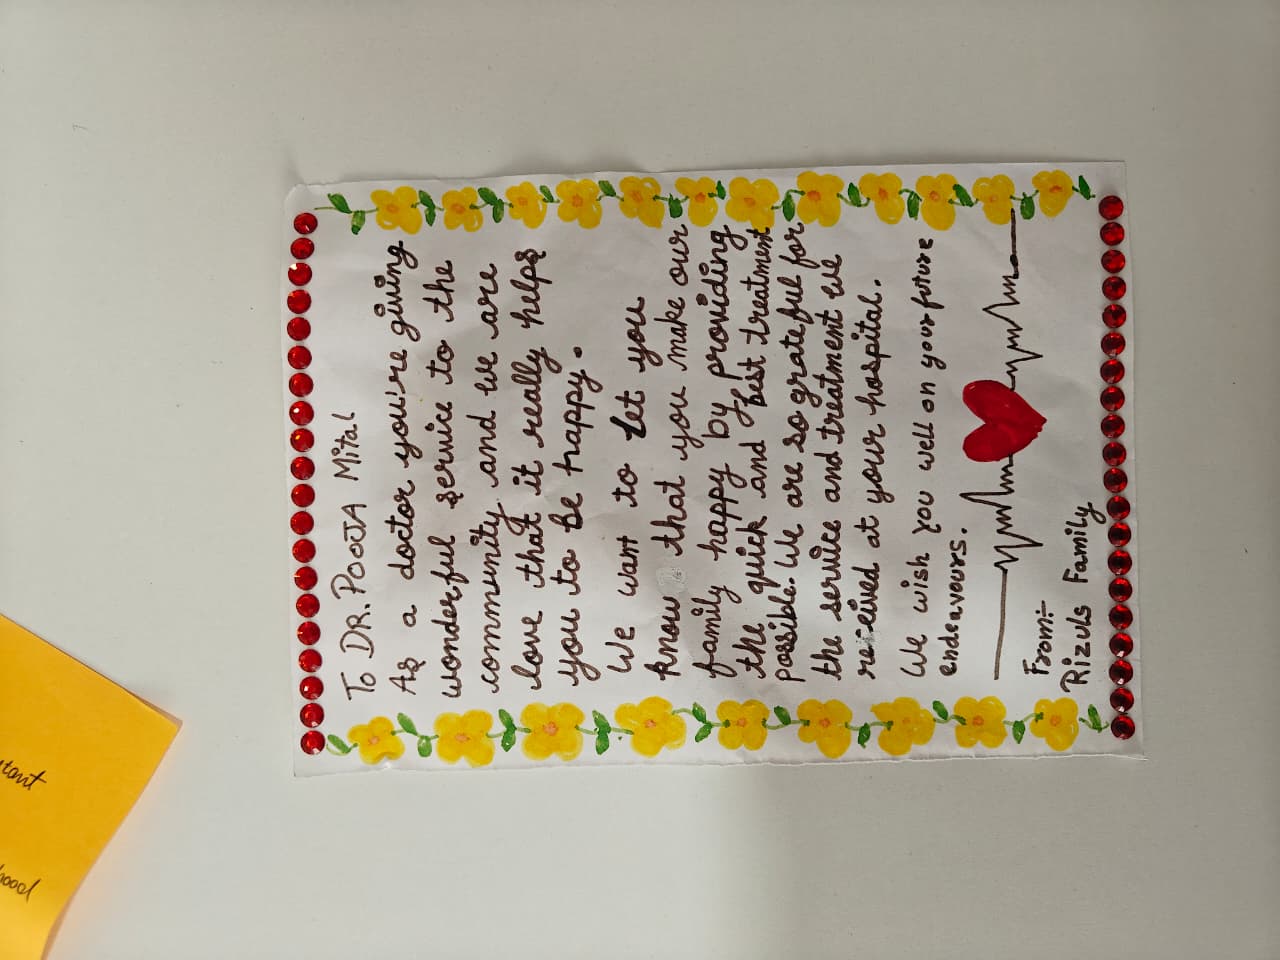 To DR. POOJA Mital
As a doctor you're giving
wonderful service to the
community and we are
love that it really helps
you to be happy.
We want to let you
know that you make our
family happy by providing
the quick and best treatment
possible. We are so grateful for
the service and treatment we
received at your hospital.
We wish you well on your future
endeavours.
From:-
Rizuls Family